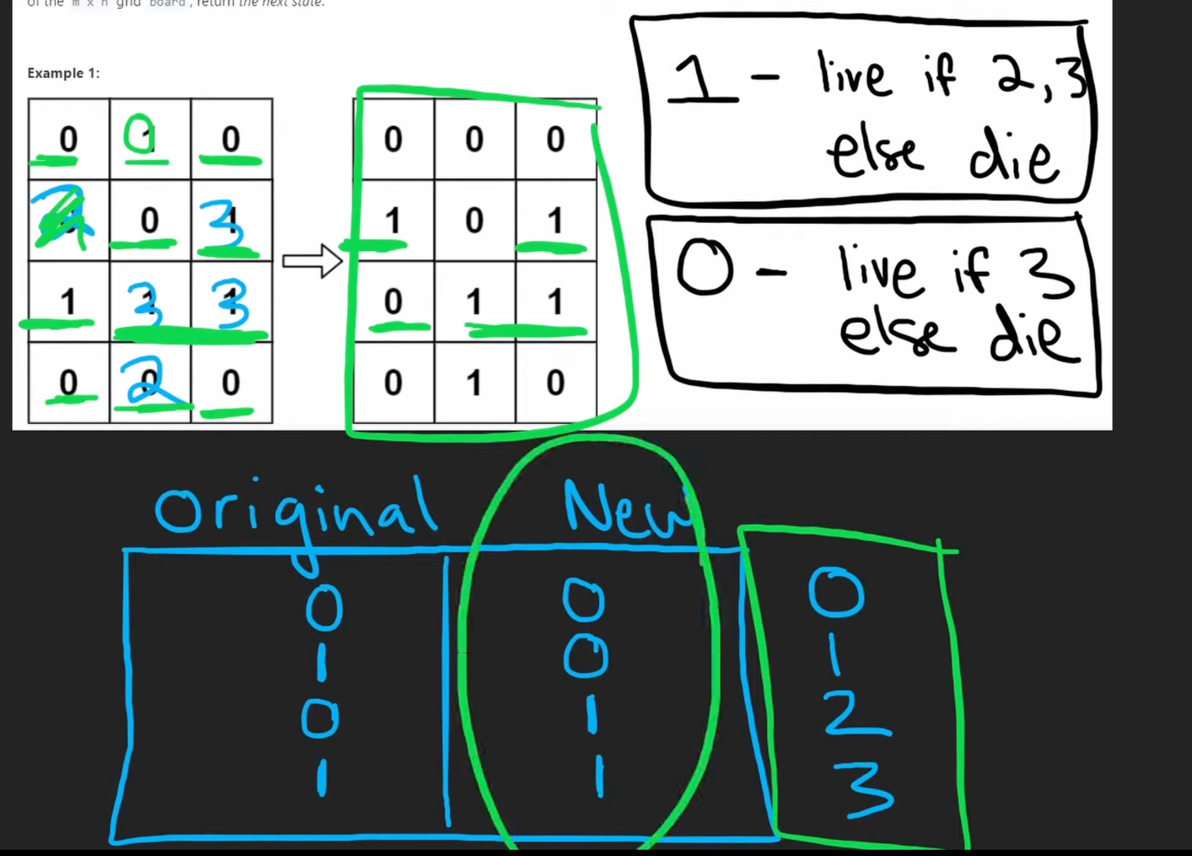 of the m x n grid board, return the next state.
Example 1:
0 0 0
0 0 3
1 3 3
0 2 0
0 0 0
1 0 1
0 1 1
0 1 0
1 - live if 2,3
else die
0 - live if 3
else die
Original New
0 0 0
1 0 1
0 1 2
1 1 3